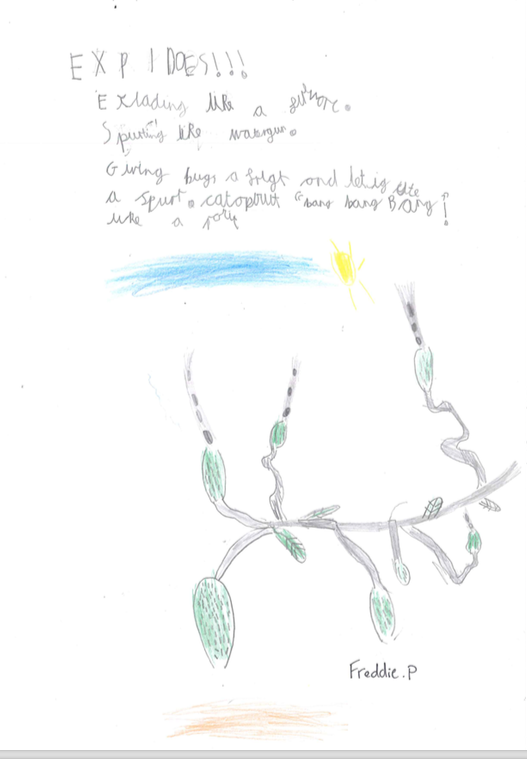 EXPlDOES!!!
Exlading like a
Spurting like watrgun.
Giving bugs a frigt and letig
a spurt. catopult "bang bang Bang!
like a
Freddie.P